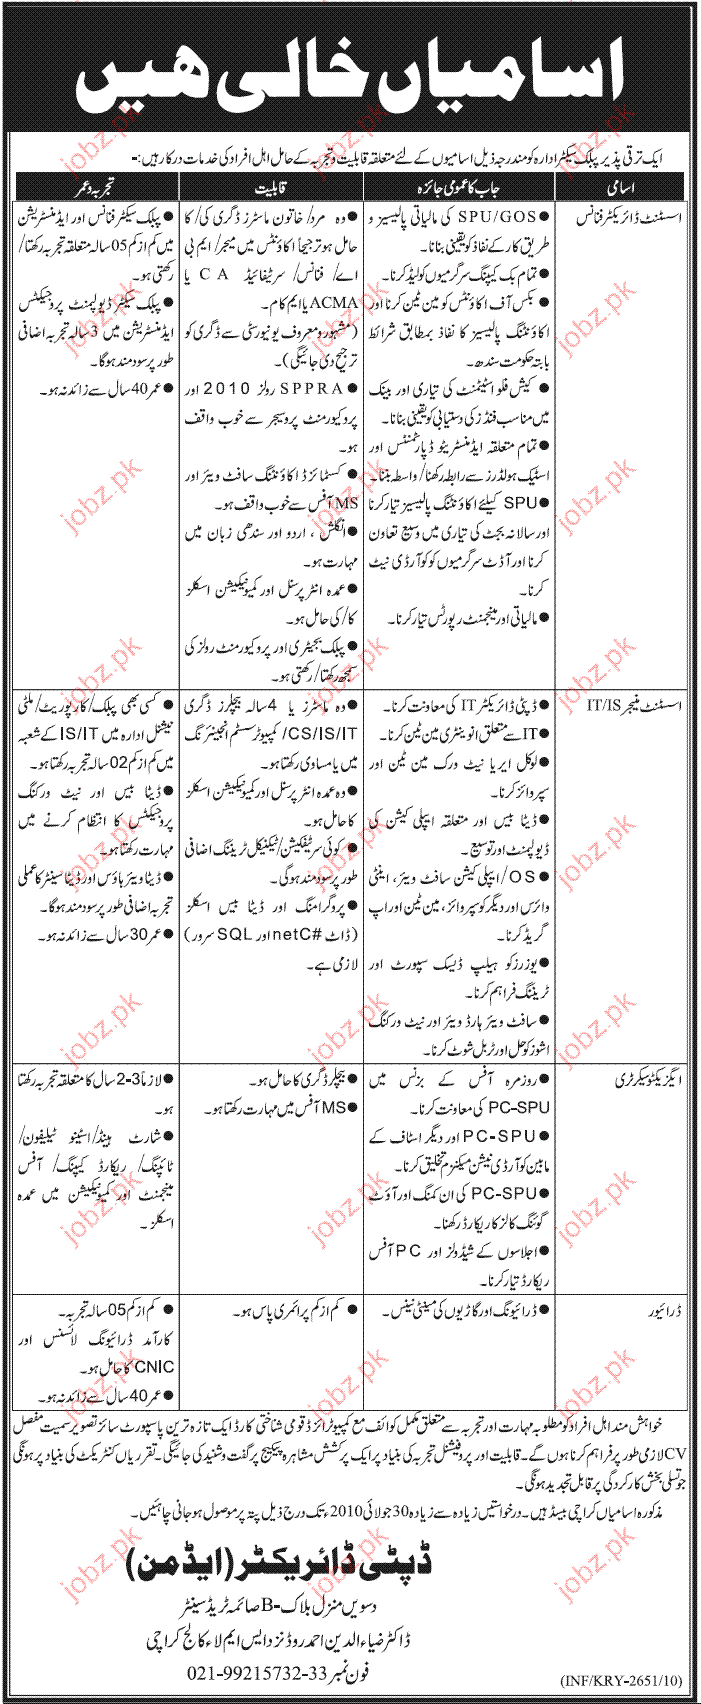 اسامیاں خالی ھیں
ایک ترقی پذیر پبلک سیکٹر ادارہ کو مندرجہ ذیل اسامیوں کے لئے متعلقہ قابلیت و تجربہ کے حامل اہل افراد کی خدمات درکار ہیں:-
اسامی
جاب کا عمومی جائزہ
قابلیت
تجربہ و عمر
اسسٹنٹ ڈائریکٹر فنانس
● SPU/GOS کی مالیاتی پالیسیز و
طریق کار کے نفاذ کو یقینی بنانا۔
● تمام بک کیپنگ سرگرمیوں کو لیڈ کرنا۔
● بکس آف اکاؤنٹس کو مین ٹین کرنا اور
اکاؤنٹنگ پالیسیز کا نفاذ بمطابق شرائط
بابتہ حکومت سندھ۔
● کیش فلو اسٹیٹمنٹ کی تیاری اور بینک
میں مناسب فنڈز کی دستیابی کو یقینی بنانا۔
● تمام متعلقہ ایڈمنسٹریٹو ڈپارٹمنٹس اور
اسٹیک ہولڈرز سے رابطہ رکھنا/واسطہ بننا۔
● SPU کیلئے اکاؤنٹنگ پالیسیز تیار کرنا
اور سالانہ بجٹ کی تیاری میں وسیع تعاون
کرنا اور آڈٹ سرگرمیوں کو کو آرڈی نیٹ
کرنا۔
● مالیاتی اور مینجمنٹ رپورٹس تیار کرنا۔
● وہ مرد/خاتون ماسٹرز ڈگری کی/کا
حامل ہو ترجیحاً اکاؤنٹس میں میجر/ایم بی
اے/فنانس/سرٹیفائیڈ CA یا
ACMA یا ایم کام۔
(مشہور و معروف یونیورسٹی سے ڈگری کو
ترجیح دی جائیگی)۔
● SPPRA رولز 2010 اور
پروکیورمنٹ پروسیجر سے خوب واقف
ہو۔
● کسٹمائزڈ اکاؤنٹنگ سافٹ ویئر اور
MS آفس سے خوب واقف ہو۔
● انگلش، اردو اور سندھی زبان میں
مہارت ہو۔
● عمدہ انٹر پرسنل اور کمیونیکیشن اسکلز
کا/کی حامل ہو۔
● پبلک بجیٹری اور پروکیورمنٹ رولز کی
سمجھ رکھتا/رکھتی ہو۔
● پبلک سیکٹر فنانس اور ایڈمنسٹریشن
میں کم از کم 05 سالہ متعلقہ تجربہ رکھتا/
رکھتی ہو۔
● پبلک سیکٹر ڈیولپمنٹ پروجیکٹس
ایڈمنسٹریشن میں 3 سالہ تجربہ اضافی
طور پر سود مند ہوگا۔
● عمر 40 سال سے زائد نہ ہو۔
اسسٹنٹ منیجر IT/IS
● ڈپٹی ڈائریکٹر IT کی معاونت کرنا۔
● IT سے متعلق انوینٹری مین ٹین کرنا۔
● لوکل ایریا نیٹ ورک مین ٹین اور
سپروائز کرنا۔
● ڈیٹا بیس اور متعلقہ ایپلی کیشن کی
ڈیولپمنٹ اور توسیع۔
● OS/ایپلی کیشن سافٹ ویئر، اینٹی
وائرس اور دیگر کو سپروائز، مین ٹین اور اپ
گریڈ کرنا۔
● یوزرز کو ہیلپ ڈیسک سپورٹ اور
ٹریننگ فراہم کرنا۔
● سافٹ ویئر ہارڈ ویئر اور نیٹ ورکنگ
اشوز کو حل اور ٹربل شوٹ کرنا۔
● وہ ماسٹرز یا 4 سالہ بیچلرز ڈگری
CS/IS/IT/کمپیوٹر سسٹم انجینئرنگ
میں یا مساوی رکھتا ہو۔
● وہ عمدہ انٹر پرسنل اور کمیونیکیشن اسکلز
کا حامل ہو۔
● کوئی سرٹیفکیشن/ٹیکنیکل ٹریننگ اضافی
طور پر سود مند ہوگی۔
● پروگرامنگ اور ڈیٹا بیس اسکلز
(ڈاٹ netC# اور SQL سرور)
لازمی ہے۔
● کسی بھی پبلک/کارپوریٹ/ملٹی
نیشنل ادارہ میں IS/IT کے شعبہ
میں کم از کم 02 سالہ تجربہ رکھتا ہو۔
● ڈیٹا بیس اور نیٹ ورکنگ
پروجیکٹس کا انتظام کرنے میں
مہارت رکھتا ہو۔
● ڈیٹا ویئر ہاؤس اور ڈیٹا سینٹر کا عملی
تجربہ اضافی طور پر سود مند ہوگا۔
● عمر 30 سال سے زائد نہ ہو۔
ایگزیکٹو سیکرٹری
● روزمرہ آفس کے بزنس میں
PC-SPU کی معاونت کرنا۔
● PC-SPU اور دیگر اسٹاف کے
مابین کو آرڈی نیشن میکنزم تخلیق کرنا۔
● PC-SPU کی ان کمنگ اور آؤٹ
گوئنگ کالز کا ریکارڈ رکھنا۔
● اجلاسوں کے شیڈولز اور PC آفس
ریکارڈ تیار کرنا۔
● بیچلر ڈگری کا حامل ہو۔
● MS آفس میں مہارت رکھتا ہو۔
● لازماً 2-3 سال کا متعلقہ تجربہ رکھتا
ہو۔
● شارٹ ہینڈ/اسٹینو ٹیلیفون/
ٹائپنگ/ریکارڈ کیپنگ/آفس
مینجمنٹ اور کمیونیکیشن میں عمدہ
اسکلز۔
ڈرائیور
● ڈرائیونگ اور گاڑیوں کی مینٹی نینس۔
● کم از کم پرائمری پاس ہو۔
● کم از کم 05 سالہ تجربہ۔
کارآمد ڈرائیونگ لائسنس اور
CNIC کا حامل ہو۔
● عمر 40 سال سے زائد نہ ہو۔
خواہش مند اہل افراد کو مطلوبہ مہارت اور تجربہ سے متعلق مکمل کوائف مع کمپیوٹرائزڈ قومی شناختی کارڈ ایک تازہ ترین پاسپورٹ سائز تصویر سمیت مفصل
CV لازمی طور پر فراہم کرنا ہوں گے۔ قابلیت اور پروفیشنل تجربہ کی بنیاد پر ایک پرکشش مشاہرہ پیکیج پر گفت و شنید کی جائیگی۔ تقرریاں کنٹریکٹ کی بنیاد پر ہونگی
جو تسلی بخش کارکردگی پر قابل تجدید ہونگی۔
مذکورہ اسامیاں کراچی بیسڈ ہیں۔ درخواستیں زیادہ سے زیادہ 30 جولائی 2010ء تک درج ذیل پتہ پر موصول ہو جانی چاہئیں۔
ڈپٹی ڈائریکٹر (ایڈمن)
دسویں منزل بلاک-B صائمہ ٹریڈ سینٹر
ڈاکٹر ضیاء الدین احمد روڈ نزد ایس ایم لاء کالج کراچی
فون نمبر 33-021-99215732
(INF/KRY-2651/10)